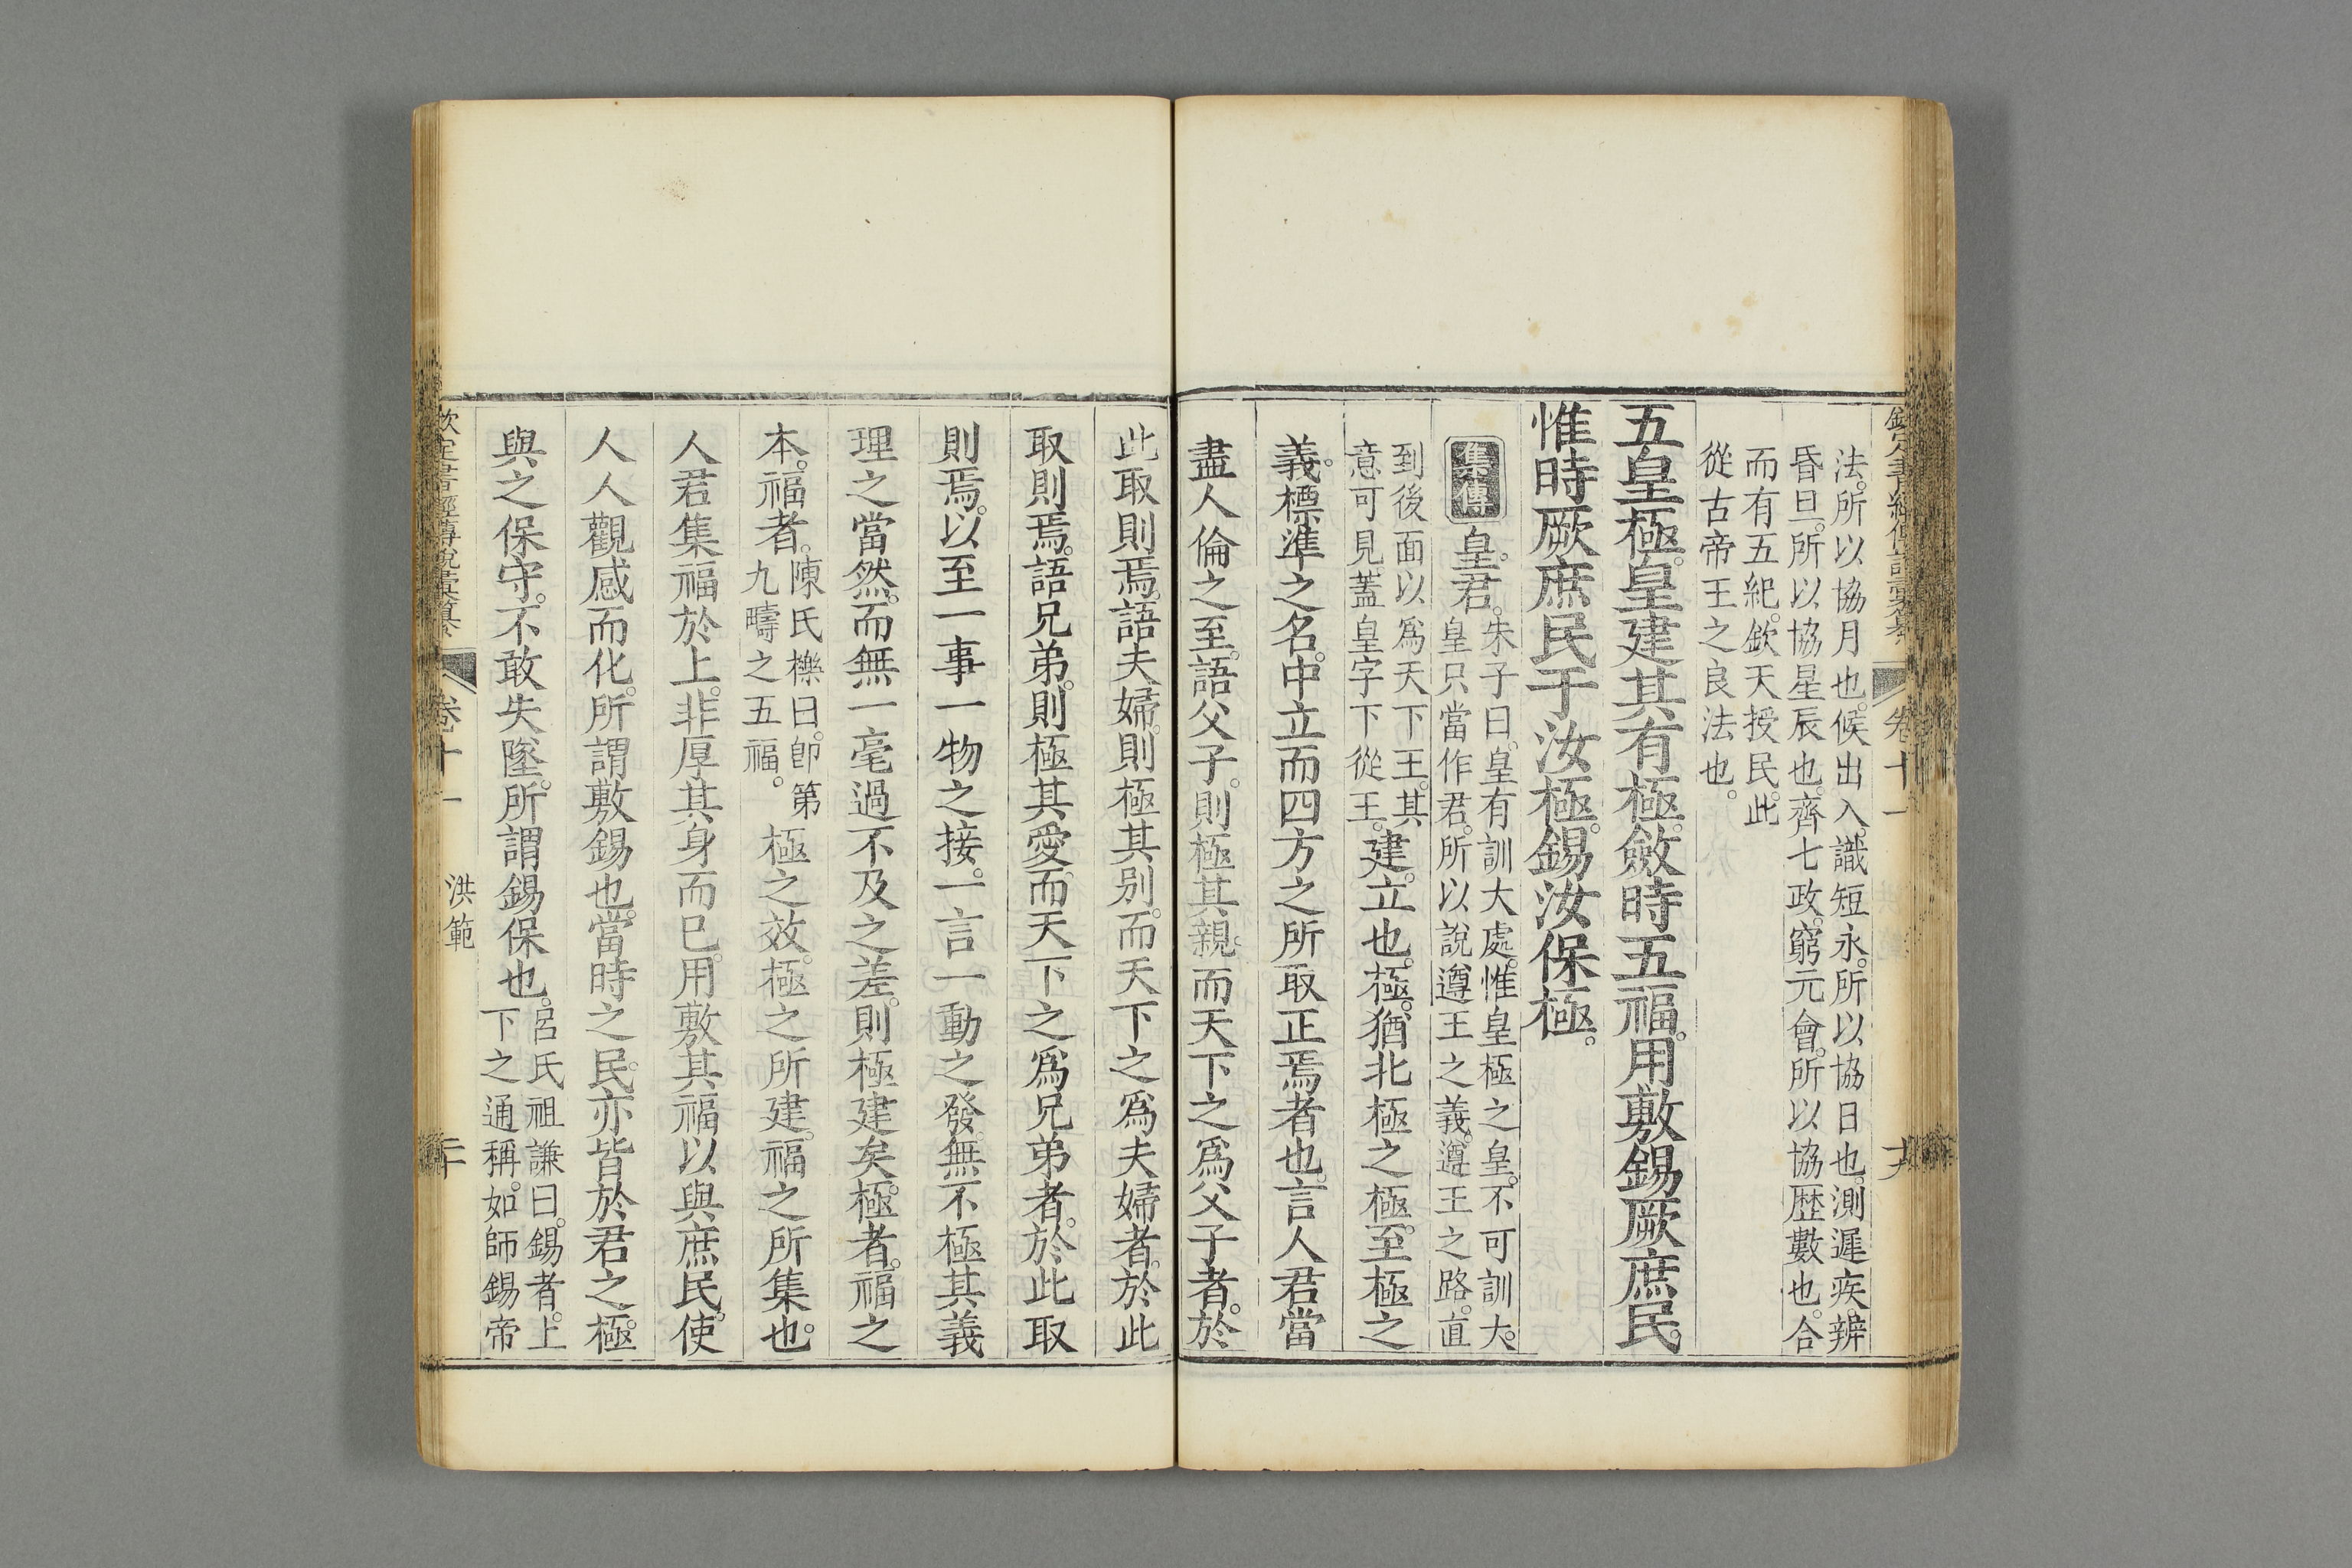 法。所以協月也。候出入。識短永。所以協日也。測遲疾。辨
昏旦。所以協星辰也。齊七政。窮元會。所以協歷數也。合
而有五紀。欽天授民。此
從古帝王之良法也。
五皇極。皇建其有極。斂時五福。用敷錫厥庶民。
惟時厥庶民于汝極。錫汝保極。
集傳 皇。君。朱子曰。皇有訓大處。惟皇極之皇。不可訓大。
皇只當作君。所以說遵王之義。遵王之路。直
到後面以爲天下王。其
意可見。蓋皇字下從王。建。立也。極。猶北極之極。至極之
義。標準之名。中立而四方之所取正焉者也。言人君當
盡人倫之至。語父子。則極其親。而天下之爲父子者。於
此取則焉。語夫婦。則極其別。而天下之爲夫婦者。於此
取則焉。語兄弟。則極其愛。而天下之爲兄弟者。於此取
則焉。以至一事一物之接。一言一動之發。無不極其義
理之當然。而無一毫過不及之差。則極建矣。極者。福之
本。福者。陳氏櫟曰。卽第
九疇之五福。極之效。極之所建。福之所集也。
人君集福於上。非厚其身而已。用敷其福以與庶民。使
人人觀感而化。所謂敷錫也。當時之民。亦皆於君之極。
與之保守。不敢失墜。所謂錫保也。呂氏祖謙曰。錫者。上
下之通稱。如師錫帝
欽定書經傳說彙纂 卷十一 洪範 二十